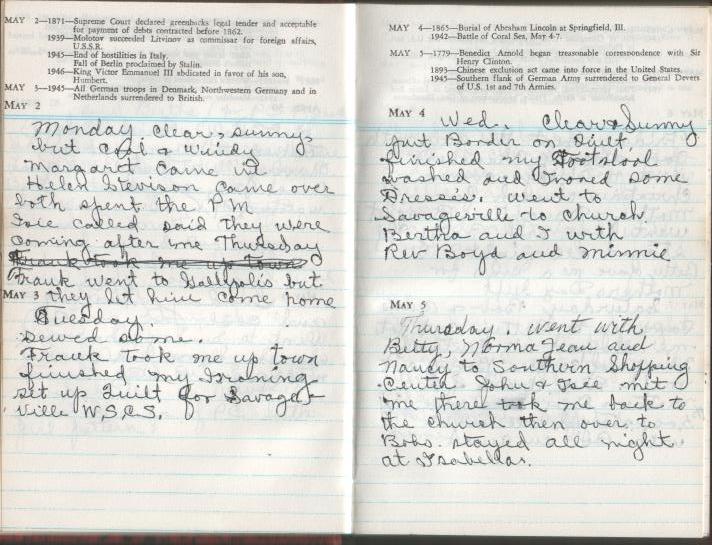 MAY 2—1871—Supreme Court declared greenbacks legal tender and acceptable
for payment of debts contracted before 1862.
1939—Molotov succeeded Litvinov as commissar for foreign affairs,
U.S.S.R.
1945—End of hostilities in Italy.
Fall of Berlin proclaimed by Stalin.
1946—King Victor Emmanuel III abdicated in favor of his son,
Humbert.
MAY 3—1945—All German troops in Denmark, Northwestern Germany and in
Netherlands surrendered to British.
MAY 2
Monday. clear, sunny,
but Cool & Windy
Margaret came in
Helen Stevison came over
both spent the PM
Isie called said they were
coming after me Thursday
Frank took me up town
Frank went to Gallipolis but
MAY 3 they let him come home
Tuesday.
Sewed some.
Frank took me up town
finished my Ironing
set up Quilt for Savage-
ville W.S.C.S.
MAY 4—1865—Burial of Abraham Lincoln at Springfield, Ill.
1942—Battle of Coral Sea, May 4-7.
MAY 5—1779—Benedict Arnold began treasonable correspondence with Sir
Henry Clinton.
1893—Chinese exclusion act came into force in the United States.
1945—Southern flank of German Army surrendered to General Devers
of U.S. 1st and 7th Armies.
MAY 4
Wed. Clear & Sunny
put Border on Quilt,
finished my Footstool
washed and Ironed some
Dresses. went to
Savageville to church,
Bertha and I with
Rev Boyd and Minnie
MAY 5
Thursday. went with
Betty, Norma Jean and
Nancy to Southern Shopping
Center John & Isie met
me there took me back to
the church then over to
Bobs. stayed all night
at Isabellas.